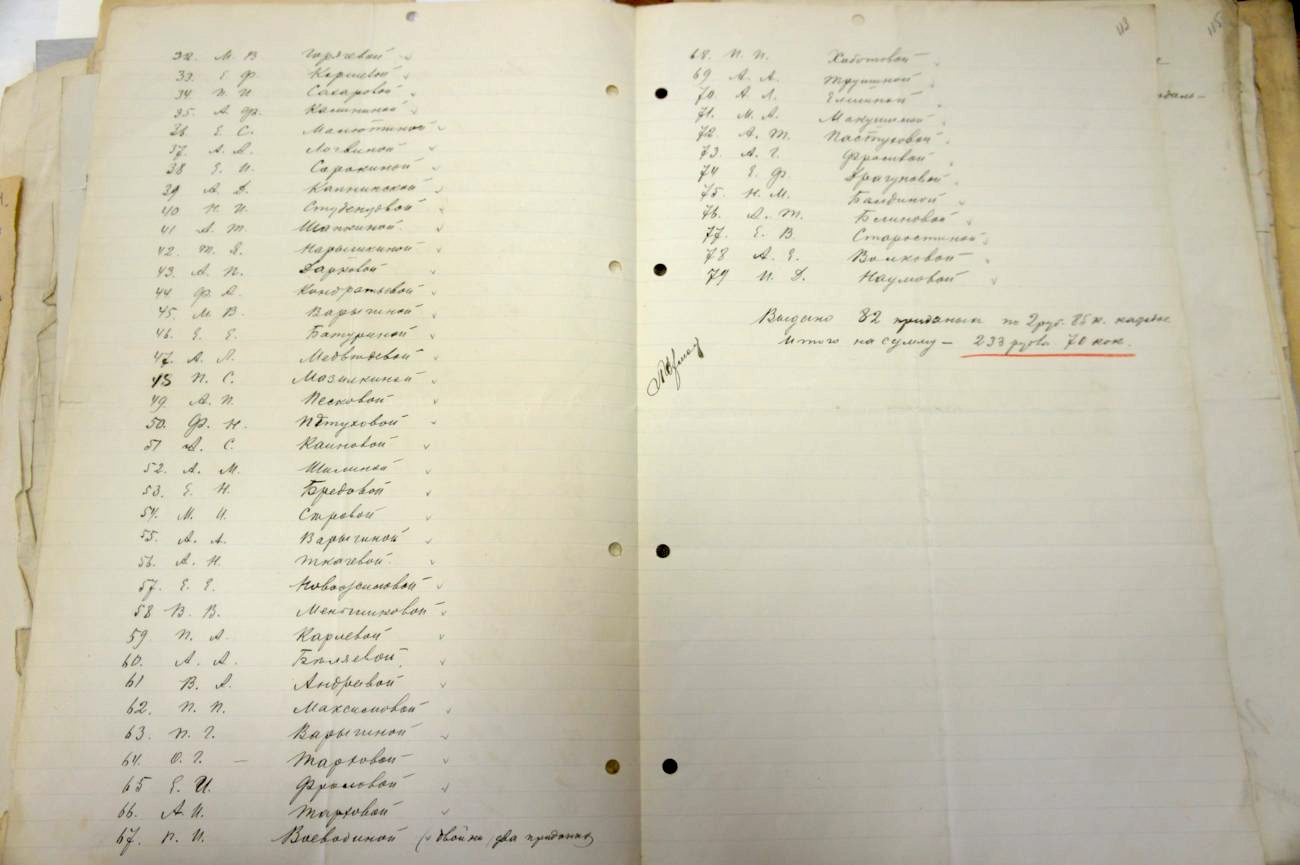 32. М. В Горячевой
33. Е. Ф. Коршевой
34. П. И Сахаровой
35. А. Фр. Калининой
36. Е. С. Малютиной
37. А. А. Логвиной
38 Е. И. Сорокиной
39 А. Д. Копнинской
40 Н. И. Студенцовой
41 А. Т. Шапкиной
42. Т. Я. Нарышкиной
43. А. П. Дарковой
44 Ф А. Кондратьевой
45. М. В. Варыгиной
46. Е. Е. Батуриной
47. А. Л. Медвѣдевой
48 П. С. Мазилкиной
49. А. П. Песковой
50. Ф. Н. Пѣтуховой
51 А. С. Каиновой
52. А. М. Шилиной
53. Е. Н. Бредовой
54. М. И. Стровой
55. А. А. Варыгиной
56. А. Н. Ткачевой
57. Е. Е. Новожиловой
58 В. В. Меньшиковой
59 П. А. Карлевой
60. А. А. Бѣляевой
61 В. А. Андреевой
62. П. П. Максимовой
63. П. Г. Варыгиной
64. О. Г. — Тарховой
65 Е. И. Фроловой
66. А И. Тарховой
67. П. И. Воеводиной (двойни, два приданка)
113
115
68. П. П. Хаботовой
69 А. А. Трушиной
70 А. Л. Елшиной
71. М. А. Макушиной
72. А. Т. Пастуховой
73. А. Г. Фроловой
74 Е. Ф. Драгуновой
75. Н. М. Балдиной
76. А. Т. Блиновой
77. Е. В. Старостиной
78 А. Е. Волковой
79 И. Д. Наумовой
Выдано 82 приданых по 2 руб. 85 к. каждое
Итого на сумму — 233 рубл 70 коп.